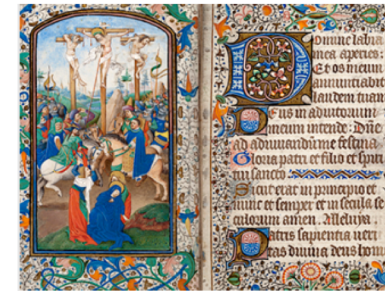 Domine labia
mea aperies:
Et os meum
annuntiabit
laudem tuam
Deus in adiutorium
meum intende: Dñe
ad adiuuandū me festina
Gloria patri et filio et spiri
tui sancto
Sicut erat in principio et
nunc et semper et in secula se
culorum amen. Alleluya.
Patris sapientia ueri
tas diuina deus hom